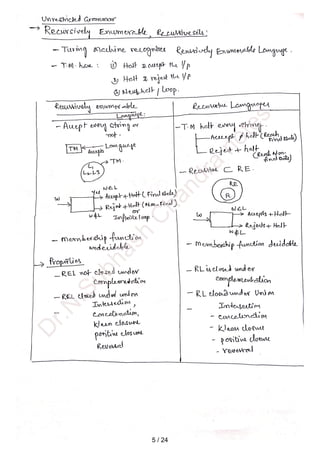 Unrestricted Grammar
→ Recursively Enumerable, Recursive sets:
- Turing machine recognizes Recursively Enumerable Language.
- T.M. have : 1) Halt & accept the I/p
2) Halt & reject the I/p
3) Never halt / Loop.
Recursively enumerable Language:
- Accept every string or not.
TM → Language
Accepts
→ TM.
L
w∈L
Yes
Accept + Halt (Final State)
w
Reject + Halt (Non-Final)
or
w∉L Infinite loop
- membership function undecidable
→ Properties
- REL not closed under Complementation
- REL closed under union
Intersection,
- Concatenation,
Kleen closure
positive closure
Reversal
Recursive Languages
- T.M halt every string.
Accept & halt (Reach Final State)
Reject + halt (Reach Non-Final State)
- Recursive ⊂ RE.
RE
R
w∈L
w
Accepts + Halt
Rejects + Halt
w∉L
- Membership function decidable
- RL is closed under complementation
- RL closed under Union
- Intersection
- Concatenation
- Kleen closure
- positive closure
- reversal
5 / 24